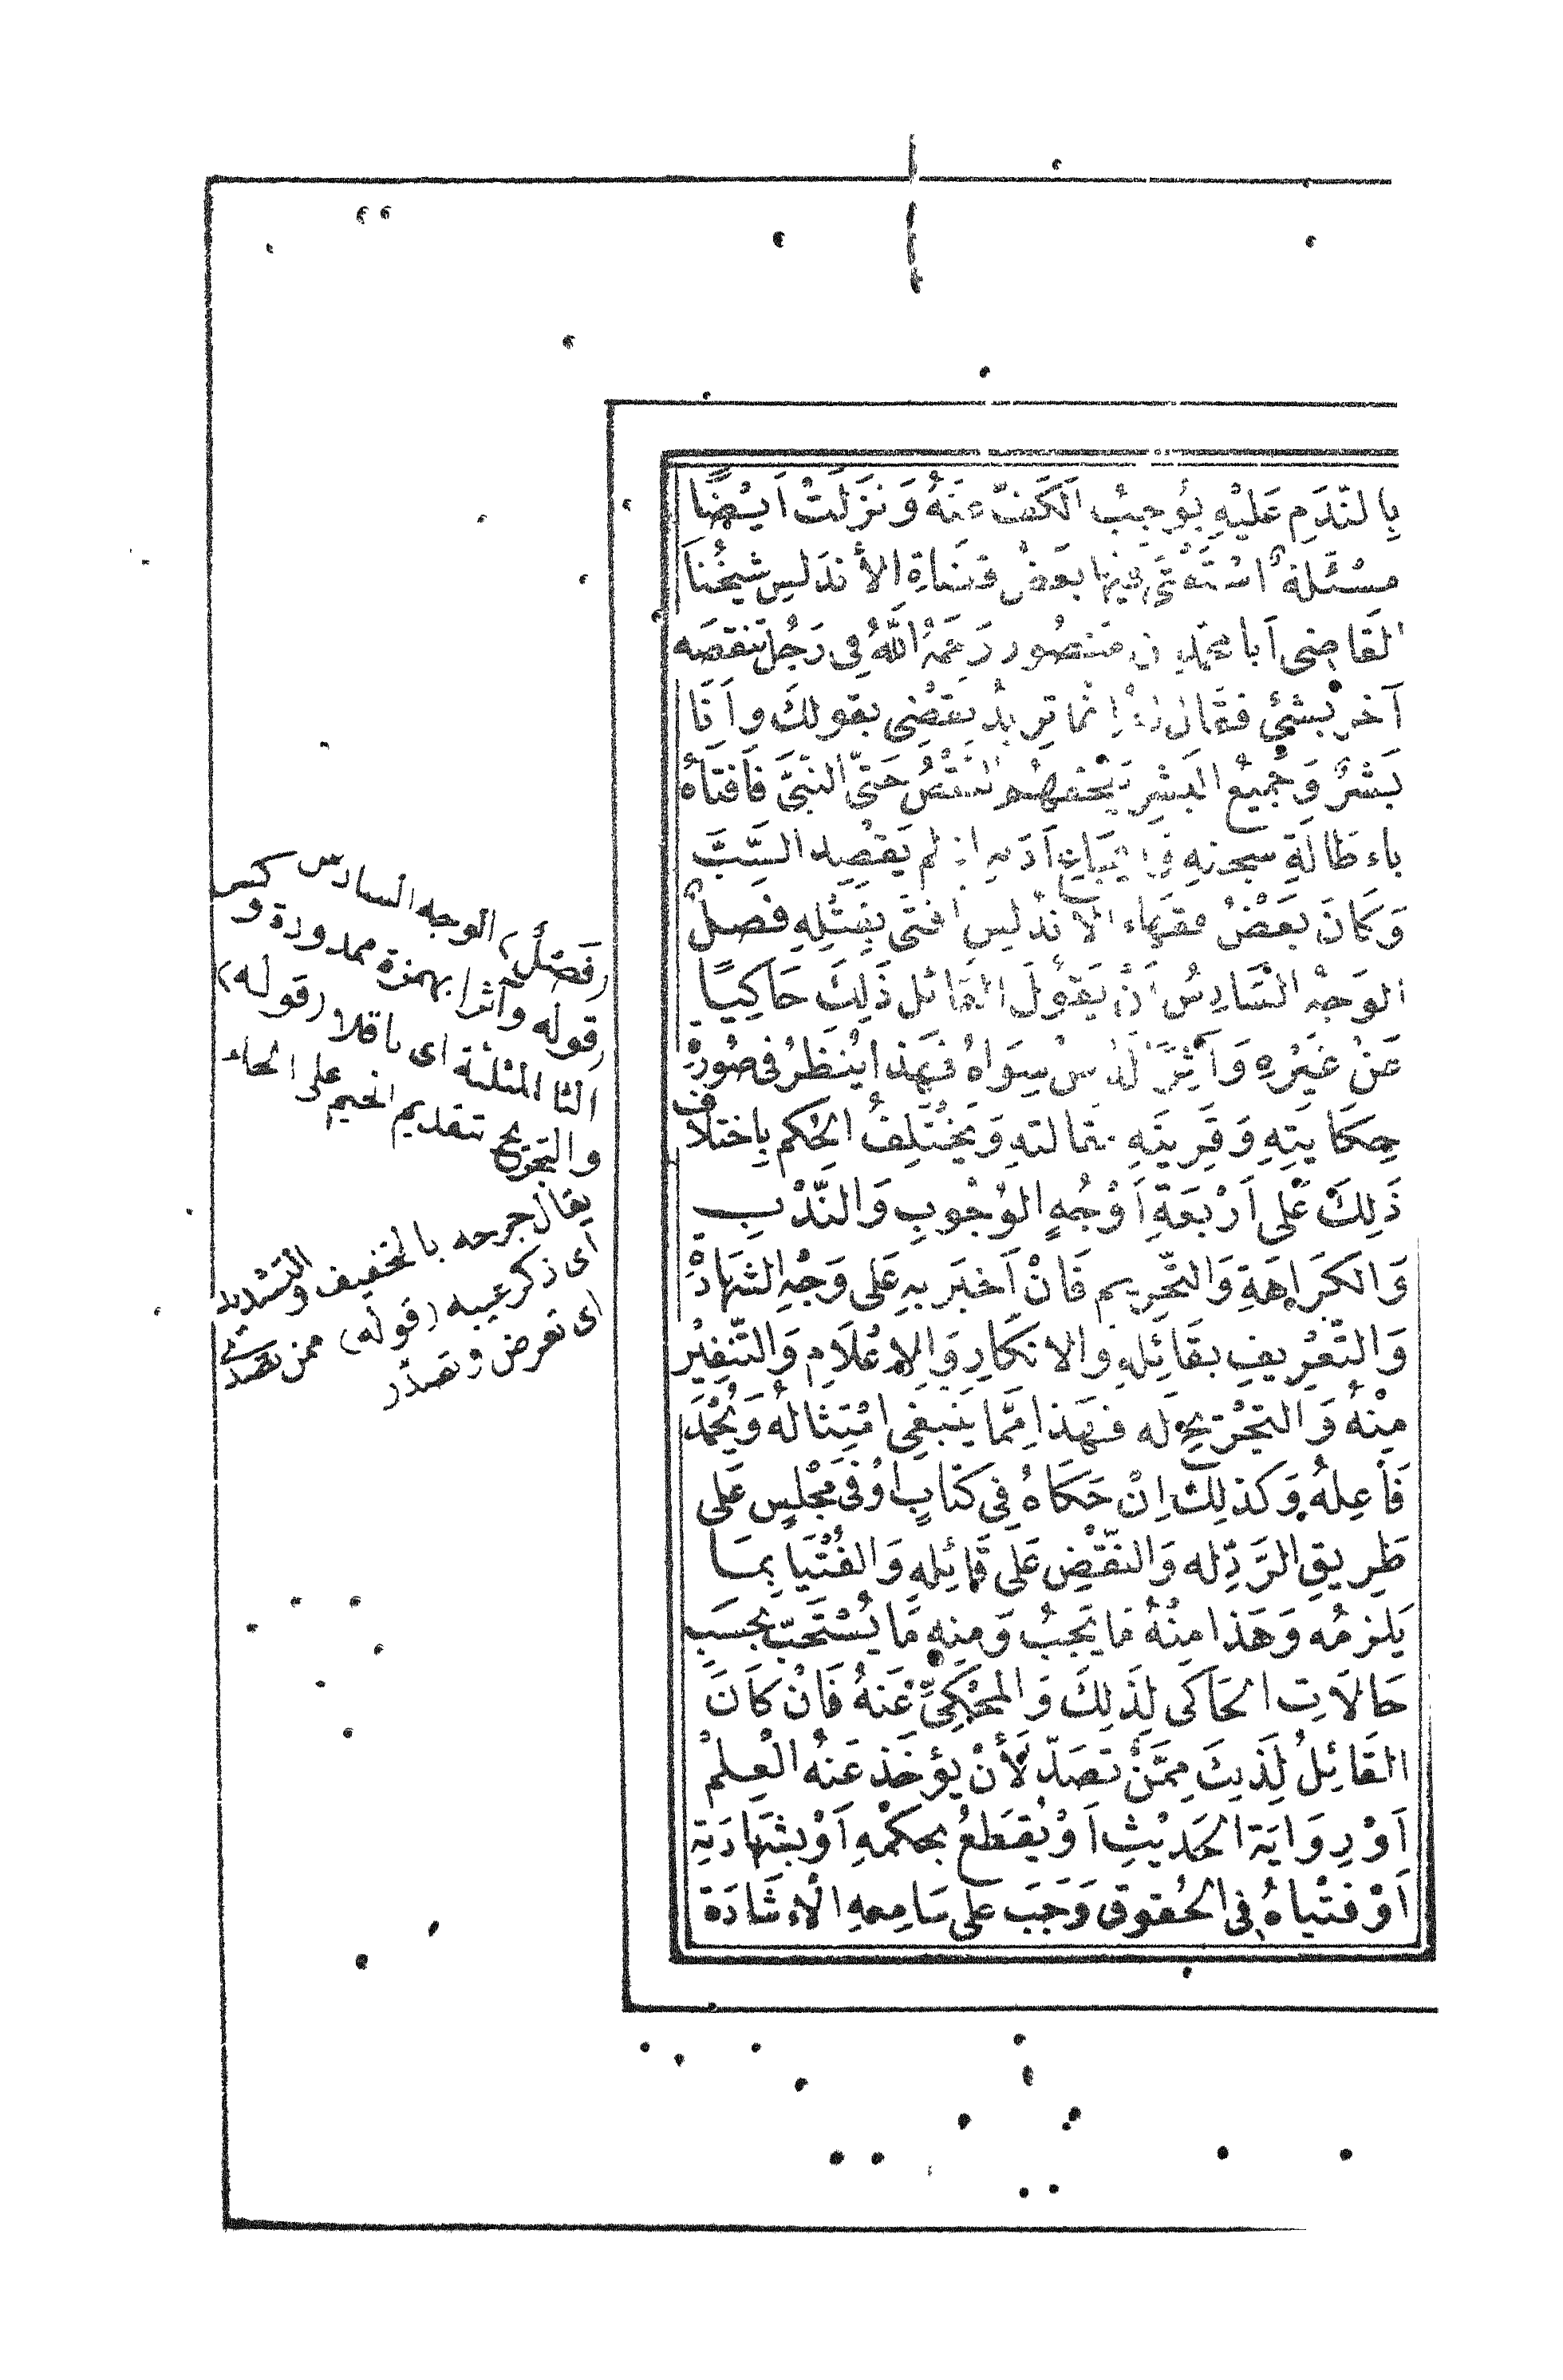 بِالنَّدَمِ عَلَيْهِ يُوجِبُ الْكَفَّ عَنْهُ وَنَزَلَتْ اَيْضًا
مَسْئَلَةٌ اسْتَفْتَى فِيهَا بَعْضُ قُضَاةِ الأندَلسِ شَيْخُنَا
القَاضِى أبا محمّد بن مَنصُور رَحِمَهُ اللّٰهُ فِى رَجُلٍ تَنقصَه
آخر بشئٍ فقَال لهُ اِنّما تريدُ نقصْى بقولكَ وأنَا
بَشَرٌ وَجَمِيعُ البَشرِ يَلْحَقهُمُ النَّقْصُ حَتّى النّبىَّ فَافتَاهُ
باءطَالةِ سجنهِ وَايجَاع اَدَبه اذ لم يَقْصِد السَّبَّ
وَكَانَ بَعْضُ فقَهَاء الأندَلسِ افتَى بقَتْلِهِ فَصلٌ
الوَجْهُ السَّادِسُ اَنْ يَقُولَ القَائل ذَلِكَ حَاكِيًا
عَنْ غَيْرِهِ وَآثِرًا لَهُ عَنْ سِوَاهُ فَهَذا يُنْظَرُ فى صُورةِ
حِكَايَتِهِ وَقَرِينَةِ مقالتهِ وَيَخْتَلِفُ الحُكم بِاختلافِ
ذَلِكَ عَلَى اَرْبَعَةِ اَوْجُهٍ الوُجُوبِ وَالنّدْبِ
وَالكَرَاهَةِ وَالتّحْرِيم فَانْ اَخبَر بهِ عَلى وَجْهِ الشهَادةِ
وَالتَّعْرِيفِ بقَائِلهِ والانكَارِ وَالاءعْلَامِ وَالتّنفِيْر
مِنْهُ وَالتجْرِيحِ لَه فهَذا مِمَّا يَنبغِى امْتِثَالُهُ وَيُحْمَدُ
فَاعِلهُ وَكَذلِكَ اِنْ حَكَاهُ فِى كتَابٍ اَوْ فى مَجْلِسٍ عَلى
طَرِيقِ الرَّدِّ له وَالنّقْضِ عَلى قَائِلهِ وَالفُتْيَا بِمَا
يَلزمُه وَهَذا مِنْهُ مَا يَجبُ وَمِنهِ مَا يُسْتَحَبّ بحسَبِ
حَالَاتِ الحَاكى لِذَلِكَ وَالمَحْكِىّ عَنهُ فَانْ كَانَ
القَائِلُ لِذَلِكَ مِمَّنْ تصَدّى لأنْ يؤخَذ عَنهُ الْعِلمُ
اَوْ رِوَايَة الحَدِيْثِ اَوْ يُقطَعُ بحكمهِ اَوْ بشَهَادَتهِ
اَوْ فتْيَاهُ فى الحُقوقِ وَجَبَ عَلى سَامِعهِ الاءشَادَة
(فَصْلٌ) الوجه السادس
(قوله وآثرا بهمزة ممدودة و كسر
الثا المثلثة اى ناقلا (قوله)
والتجريح بتقديم الجيم على الحاء
يقال جرحه بالتخفيف والتشديد
اى ذكر عيبه (قوله) ممن تصدى
اى تعرض وتصدّر